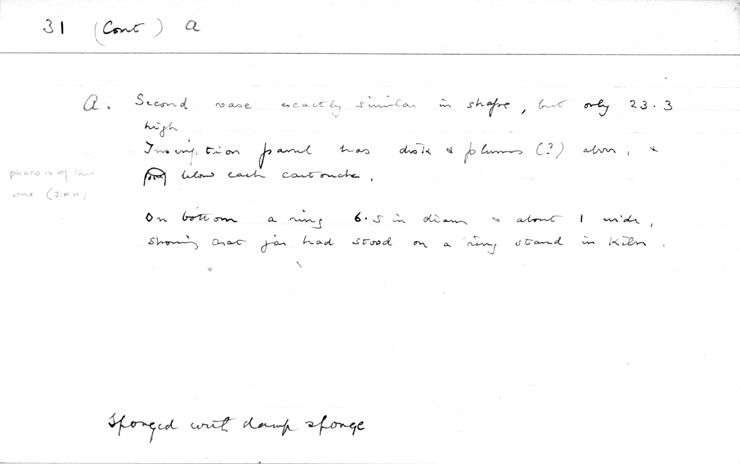 31 (Cont) a
a. Second vase exactly similar in shape, but only 23.3
high
Inscription panel has disk & plumes (?) above, &
below each cartouche.
photo is of this
one (J.A.H.)
On bottom a ring 6.5 in diam & about 1 wide,
showing that jar had stood on a ring stand in kiln.
Sponged with damp sponge